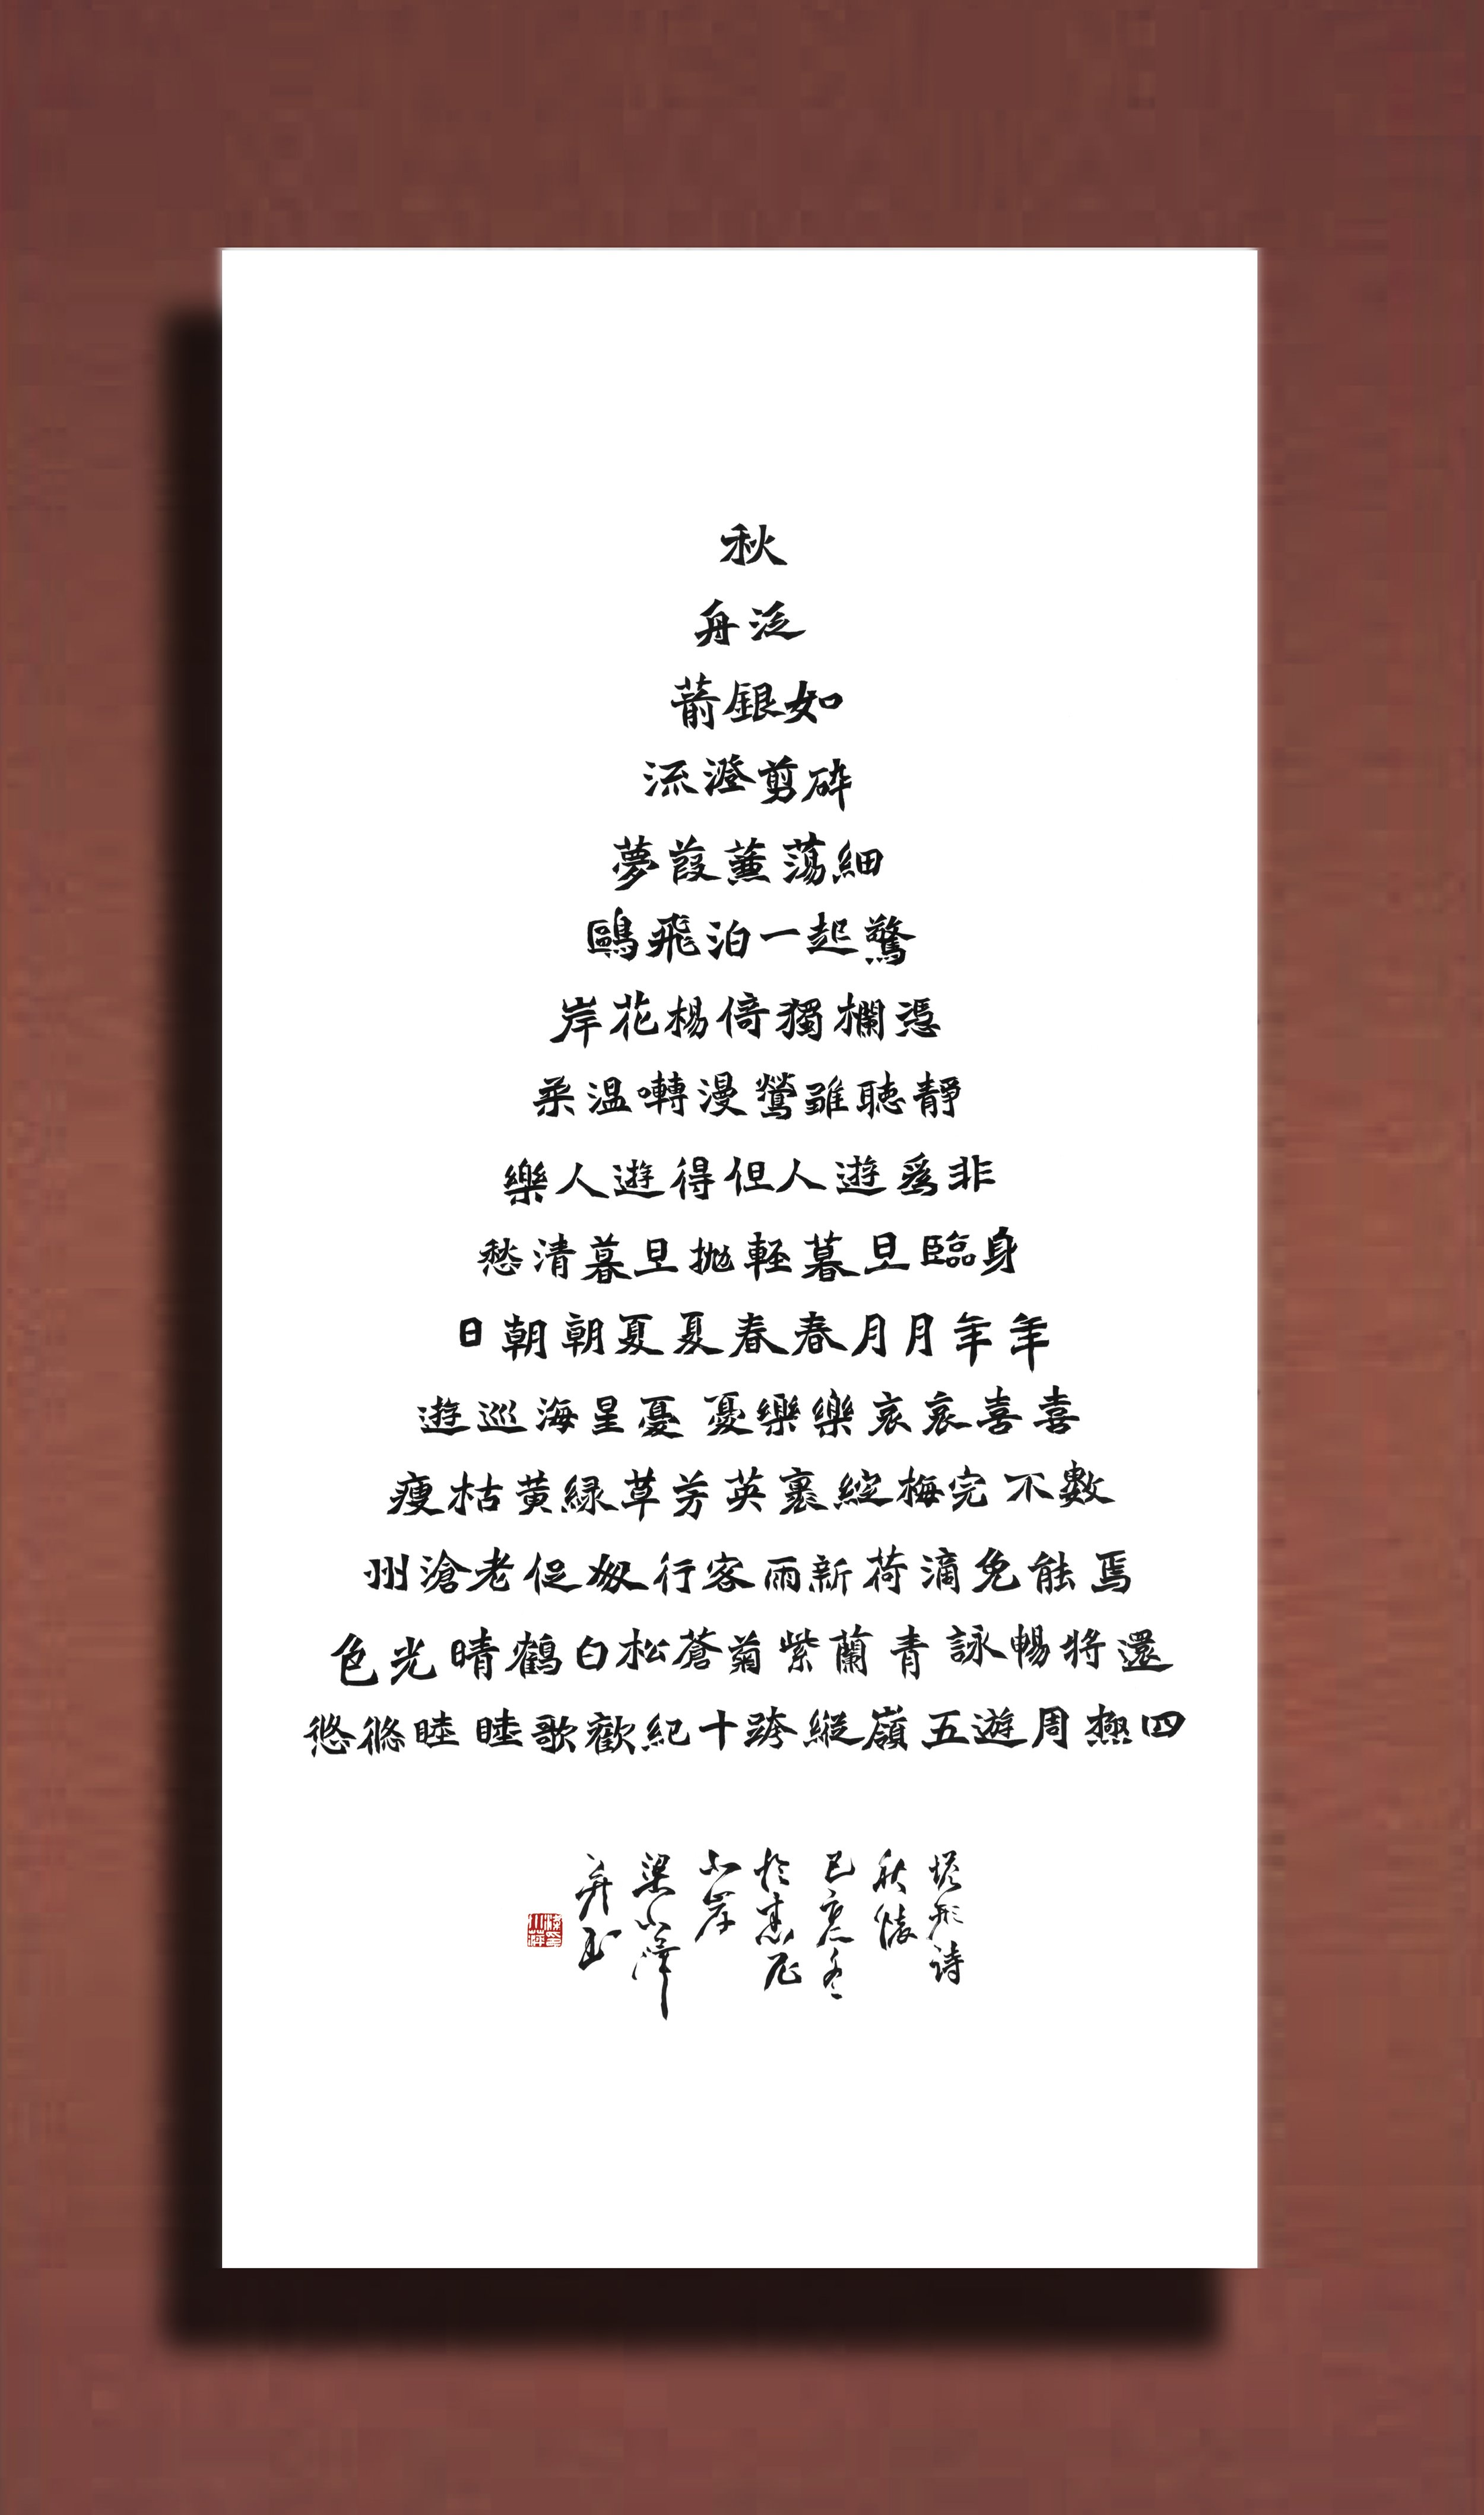 秋
泛舟
如銀箭
碎剪澄流
細蕩蒹葭夢
驚起一泊飛鷗
憑欄獨倚楊花岸
靜聽雖鶯漫囀温柔
非爲遊人但得遊人樂
身臨旦暮輕拋旦暮清愁
年年月月春春夏夏朝朝日
喜喜哀哀樂樂憂憂星海巡遊
數不完梅綻裹英芳草緑黄枯瘦
焉能免滴荷新雨客行匆促老滄州
還將暢詠青蘭紫菊蒼松白鶴晴光色
四極周遊五嶺縱跨十紀歡歌睦睦悠悠
塔形詩
秋懷
己亥冬
於悉尼
北岸
梁小萍
并書